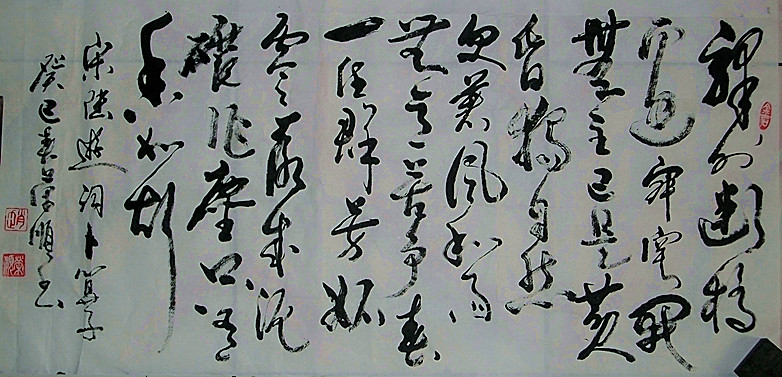 驛外斷橋
邊寂寞開
無主已是黃
昏獨自愁
更著風和雨
無意苦爭春
一任群芳妒
零落成泥
碾作塵只有
香如故
宋陸遊詞卜算子
癸巳春順書